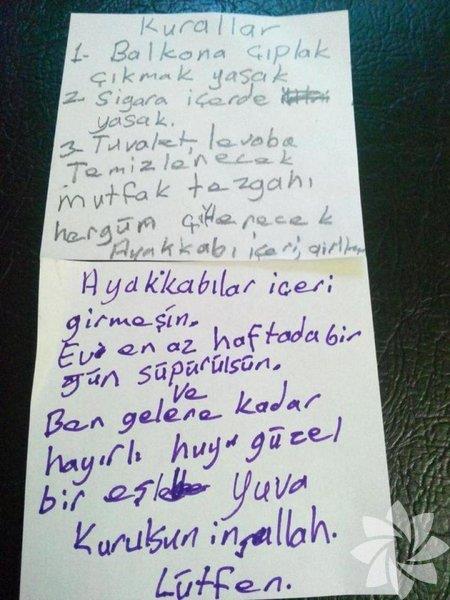 Kurallar
1- Balkona çıplak
çıkmak yasak
2- Sigara içerde
yasak.
3- Tuvalet, levoba
Temizlenecek
mutfak tezgahı
hergün
Ayakkabı içeri,
Ayakkabılar içeri
girmeşin.
Evi en az haftada bir
gün süpürülsün.
ve
Ben gelene kadar
hayırlı huyu güzel
bir eşle Yuva
Kurulsun inşallah.
Lütfen.